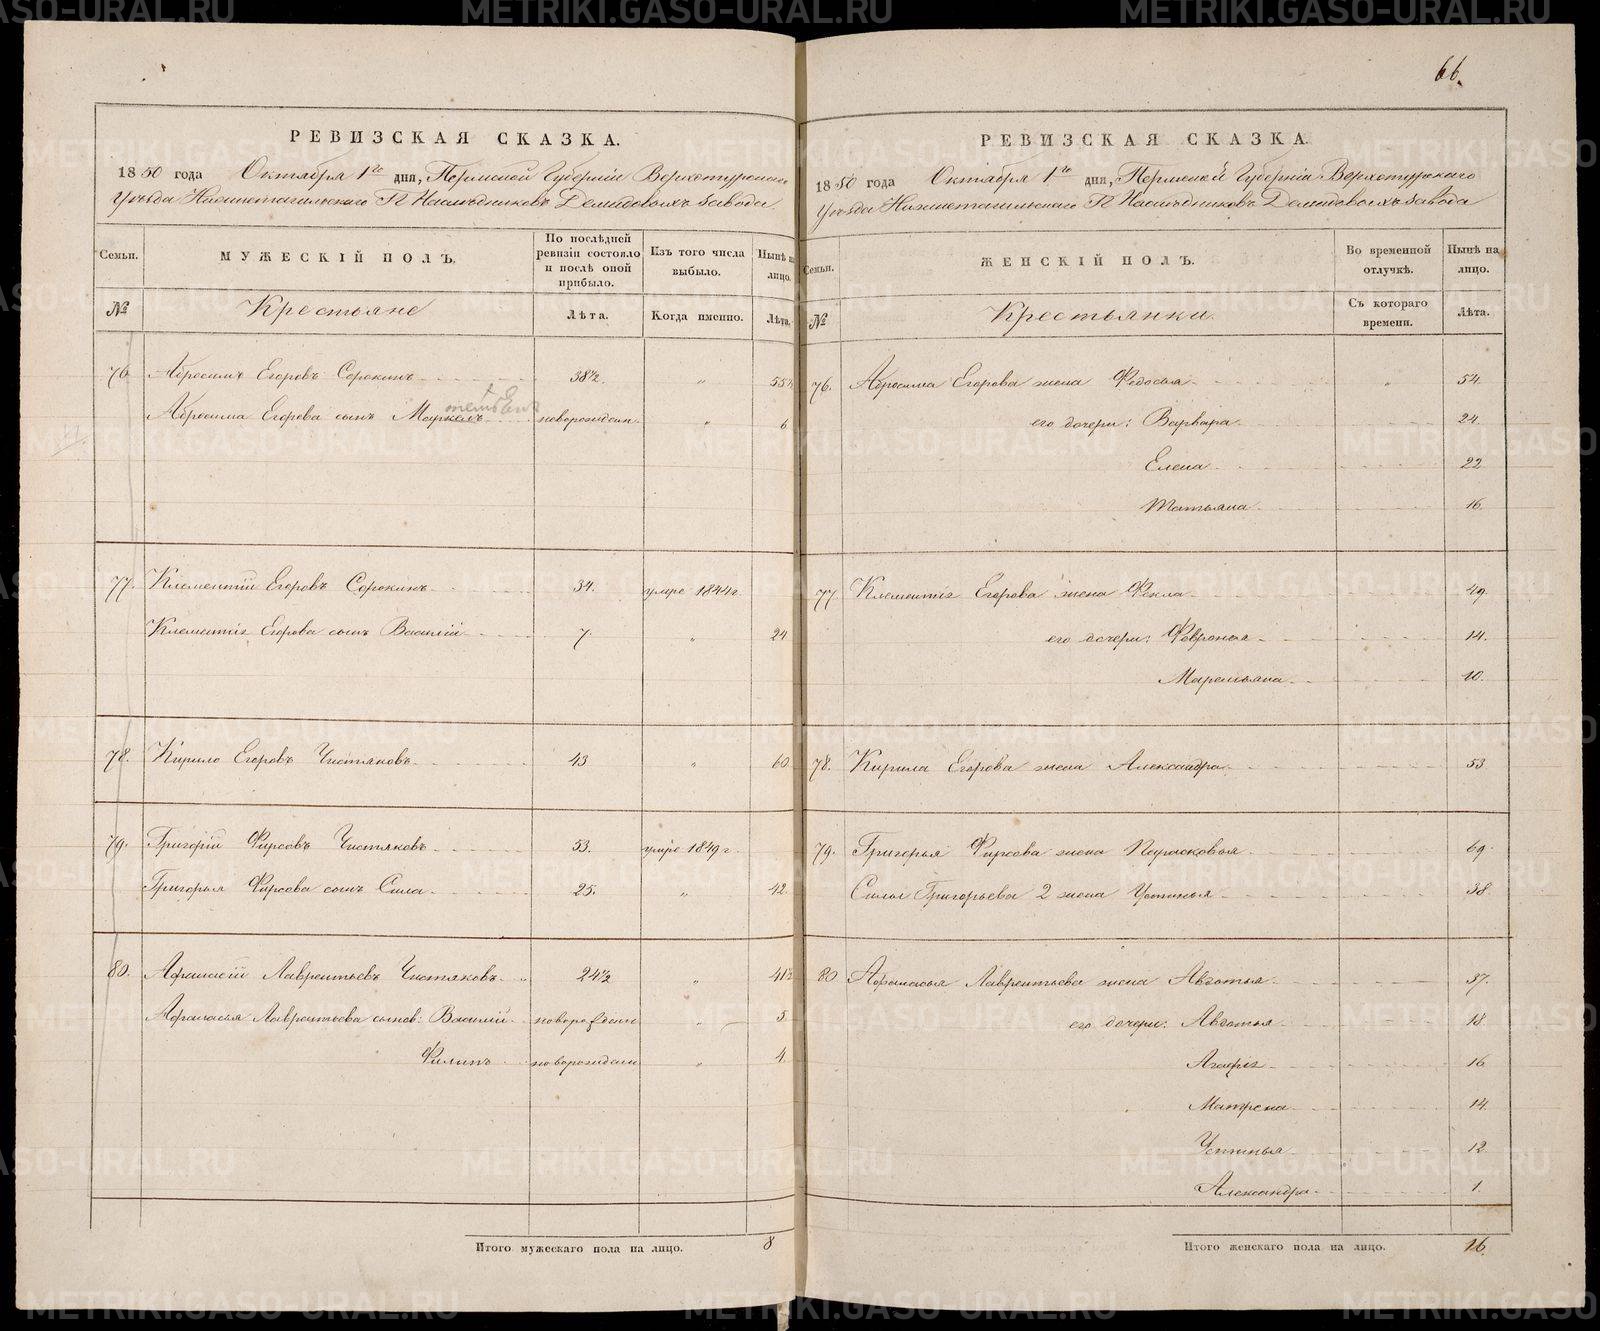 66.
РЕВИЗСКАЯ СКАЗКА.
1850 года Октября 1го дня, Пермской Губерніи Верхотурскаго
Уѣзда Нижнетагильскаго Г. Наслѣдниковъ Демидовыхъ завода
Семьи. МУЖЕСКІЙ ПОЛЪ. По послѣдней ревизіи состояло и послѣ оной прибыло. Изъ того числа выбыло. Нынѣ на лицо.
№ Крестьяне Лѣта. Когда именно. Лѣта.
76 Абросимъ Егоровъ Сорокинъ 38½. „ 55½
Абросима Егорова сынъ Маркелъ новорожден. „ 6
77. Клементій Егоровъ Сорокинъ 34. умре 1844 г.
Клементія Егорова сынъ Василій 7. „ 24
78. Кирило Егоровъ Чистяковъ 43 „ 60
79. Григорій Фирсовъ Чистяковъ 53. умре 1849 г.
Григорья Фирсова сынъ Сила 25. „ 42
80. Афанасій Лаврентьевъ Чистяковъ 24½ „ 41½
Афанасья Лаврентьева сынов: Василій новорожден „ 5
Филипъ новорожден „ 4.
Итого мужескаго пола на лицо. 8
РЕВИЗСКАЯ СКАЗКА.
1850 года Октября 1го дня, Пермской Губерніи Верхотурскаго
Уѣзда Нижнетагильскаго Г. Наслѣдниковъ Демидовыхъ завода
Семьи. ЖЕНСКІЙ ПОЛЪ. Во временной отлучкѣ. Нынѣ на лицо.
№ Крестьянки. Съ котораго времени. Лѣта.
76. Абросима Егорова жена Федосья „ 54.
его дочери: Варвара 24.
Елена 22
Татьяна 16.
77 Клементія Егорова жена Фекла 49.
его дочери: Февронья 14.
Маремьяна 10.
78. Кирила Егорова жена Александра 53
79. Григорья Фирсова жена Парасковья 69.
Силы Григорьева 2 жена Устинья 38.
80 Афанасья Лаврентьева жена Авдотья 37.
его дочери: Авдотья 18.
Агафія 16
Матрена 14.
Устинья 12
Александра 1.
Итого женскаго пола на лицо. 16.
METRIKI.GASO-URAL.RU